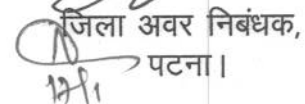 जिला अवर निबंधक,
पटना।
17/1